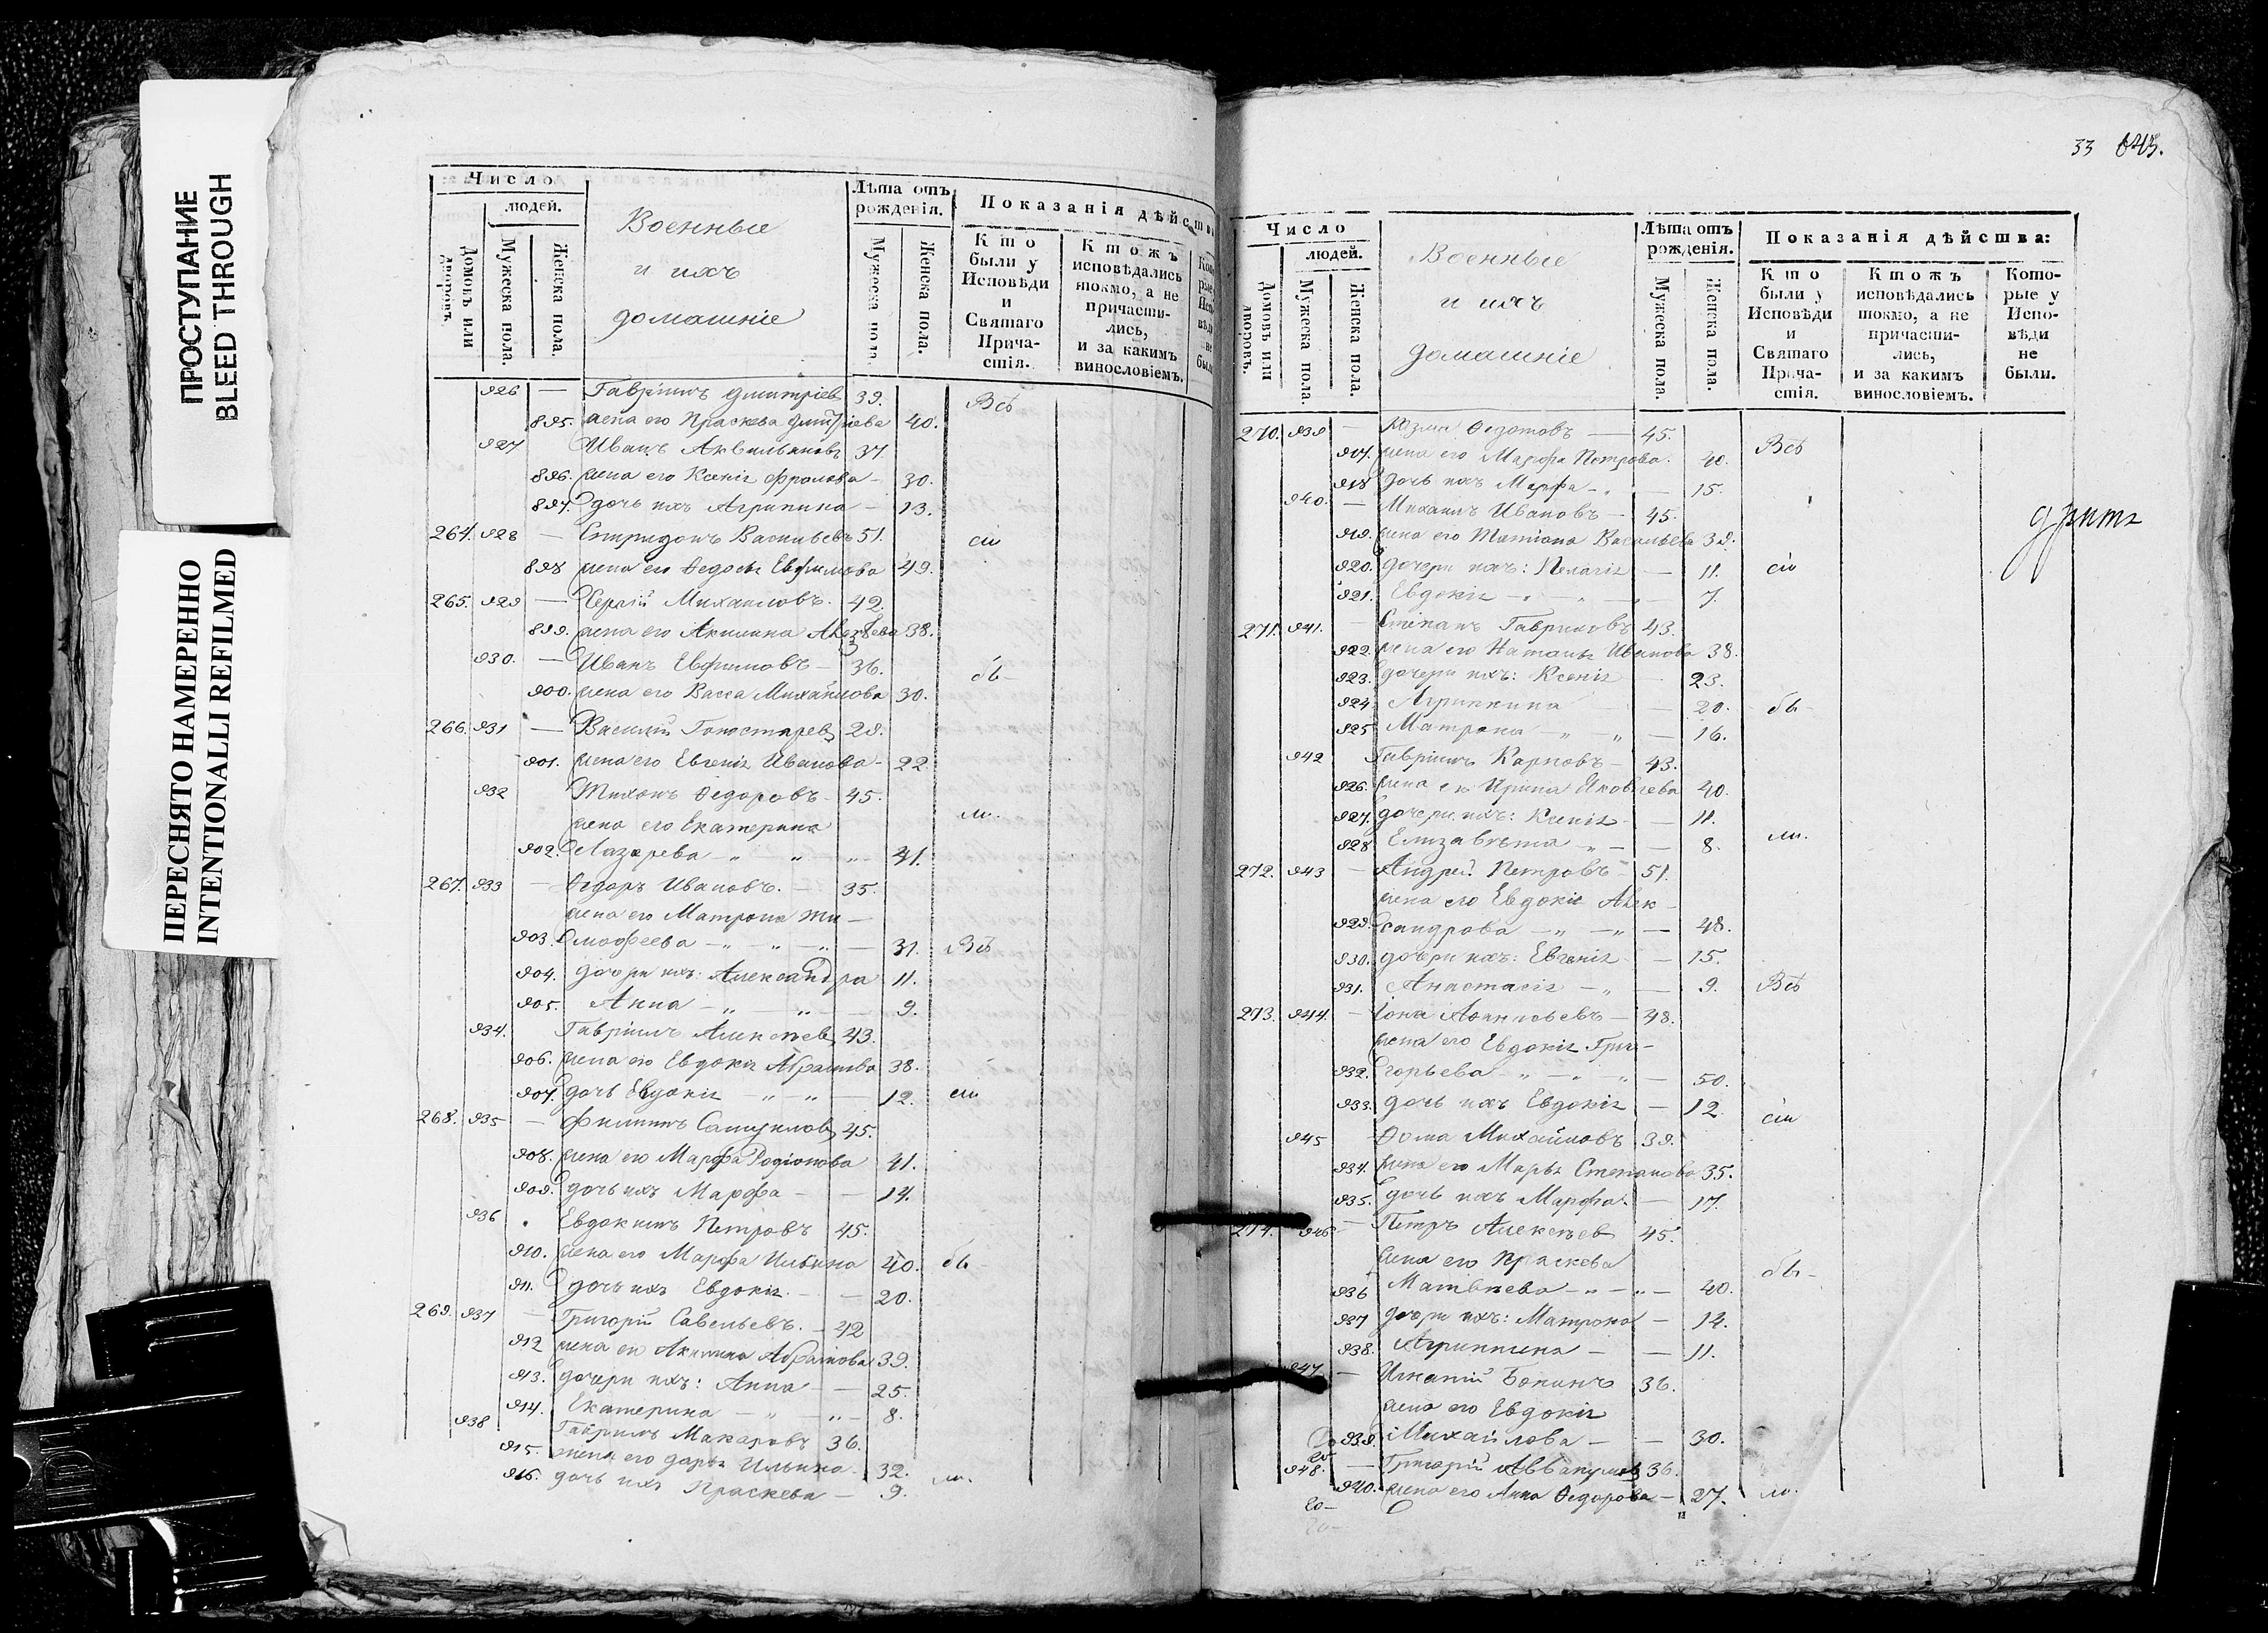 ПРОСТУПАНИЕ
BLEED THROUGH
ПЕРЕСНЯТО НАМЕРЕННО
INTENTIONALLI REFILMED
Число
людей.
Домовъ или дворовъ.
Мужеска пола.
Женска пола.
Военные
и ихъ
домашніе
Лѣта отъ рожденія.
Мужеска пола.
Женска пола.
Показанія дѣйства
Кто были у Исповѣди и Святаго Прича-стія.
Ктожъ исповѣдались токмо, а не причасти-лись, и за какимъ винословіемъ.
926 — Гавріилъ Дмитріев 39. Всѣ
895. жена его Праскева Дмитріева 40.
927 Иванъ 37.
896. жена его Ксенія Фролова — 30.
897. дочь ихъ Агрипина — 13.
264. 928 — Спиридонъ Васильевъ 51. сіи
898 жена его Ѳедосья Евфимова 49.
265. 929 — Сергій Михаиловъ. 42.
899. жена его Акилина 38.
930. — Иванъ Евфимовъ — 36. бы-
900. жена его Васса Михайлова 30.
266. 931 — Василій 29.
901. жена его Евгенія Иванова — 22
932 Тихонъ Ѳедоровъ — 45.
жена его Екатерина ли.
902. Лазарева — „ — „ — „ 41.
267. 933 — Ѳедоръ Ивановъ. — 35.
жена его Матрона Ти—
903. моѳеева — „ — „ — „ — 31. Всѣ
904. дочери ихъ: Александра 11.
905. Анна — „ — „ — 9.
934. Гавріилъ Алексѣев 43.
906. жена его Евдокія Абрамова 38.
907. дочь Евдокія — „ — „ — 12. сіи
268. 935 — Филиппъ Самуилов 45.
908. жена его Марфа Родіонова 41.
909. дочь ихъ Марфа — — 14.
936 Евдокимъ Петровъ 45.
910. жена его Марфа Ильина 40. бы-
911. дочь ихъ Евдокія. — — 20.
269. 937 — Григорій Савельевъ. — 42
912 жена его Акилина Абрамова 39.
913. дочери ихъ: Анна — — 25.
914. Екатерина — „ — „ — 8.
938 Гавріилъ Макаровъ 36.
915. жена его Дарья Ильина. 32.
916. дочь ихъ Праскева — 9. ли.
33 645.
Число
людей.
Домовъ или дворовъ.
Мужеска пола.
Женска пола.
Военные
и ихъ
домашніе
Лѣта отъ рожденія.
Мужеска пола.
Женска пола.
Показанія дѣйства:
Кто были у Исповѣди и Святаго Прича-стія.
Ктожъ исповѣдались токмо, а не причасти-лись, и за какимъ винословіемъ.
Кото-рые у Испо-вѣди не были.
270. 939 — Козма Ѳедотовъ — 45. Всѣ
917. жена его Марфа Петрова. 40.
918 дочь ихъ Марфа — „ — 15.
940. — Михаилъ Ивановъ — 45.
919. жена его Татіана Васильева 39.
920. дочери ихъ: Пелагія — 11. сіи
921. Евдокія — „ — „ — 7.
271. 941. — Степанъ Гавриловъ 43.
922. жена его Наталья Иванова 38.
923. дочери ихъ: Ксенія — 23.
924 Агрипина — 20. бы-
925 Матрона — „ — „ — 16.
942 Гавріилъ Карповъ — 43.
926. жена его Ирина Яковлева 40.
927. дочери ихъ: Ксенія — 11.
928 Елизавѣта — „ — — 8. ли.
272. 943 — Андрей Петровъ — 51.
жена его Евдокія Алек—
929. сандрова — „ — „ — 48.
930. дочери ихъ: Евгенія — 15.
931. Анастасія — „ — 9. Всѣ
273. 944. — Іона 48.
жена его Евдокія Гри—
932. горьева — „ — „ — „ — 50.
933. дочь ихъ Евдокія — 12. сіи
945 Ѳома Михайловъ 39.
934. жена его Марья Степанова 35.
935. дочь ихъ Марфа. — 17.
274. 946 — Петръ Алексѣев 45.
жена его Праскева бы-
936 Матвѣева — „ — „ — 40.
937 дочери ихъ: Матрона — 14.
938. Агриппина — — 11.
947 — Игнатій 36.
жена его Евдокія
939. Михайлова — — 30.
948. — Григорій Аввакумов 36.
940. жена его Анна Ѳедорова — 27. ли.